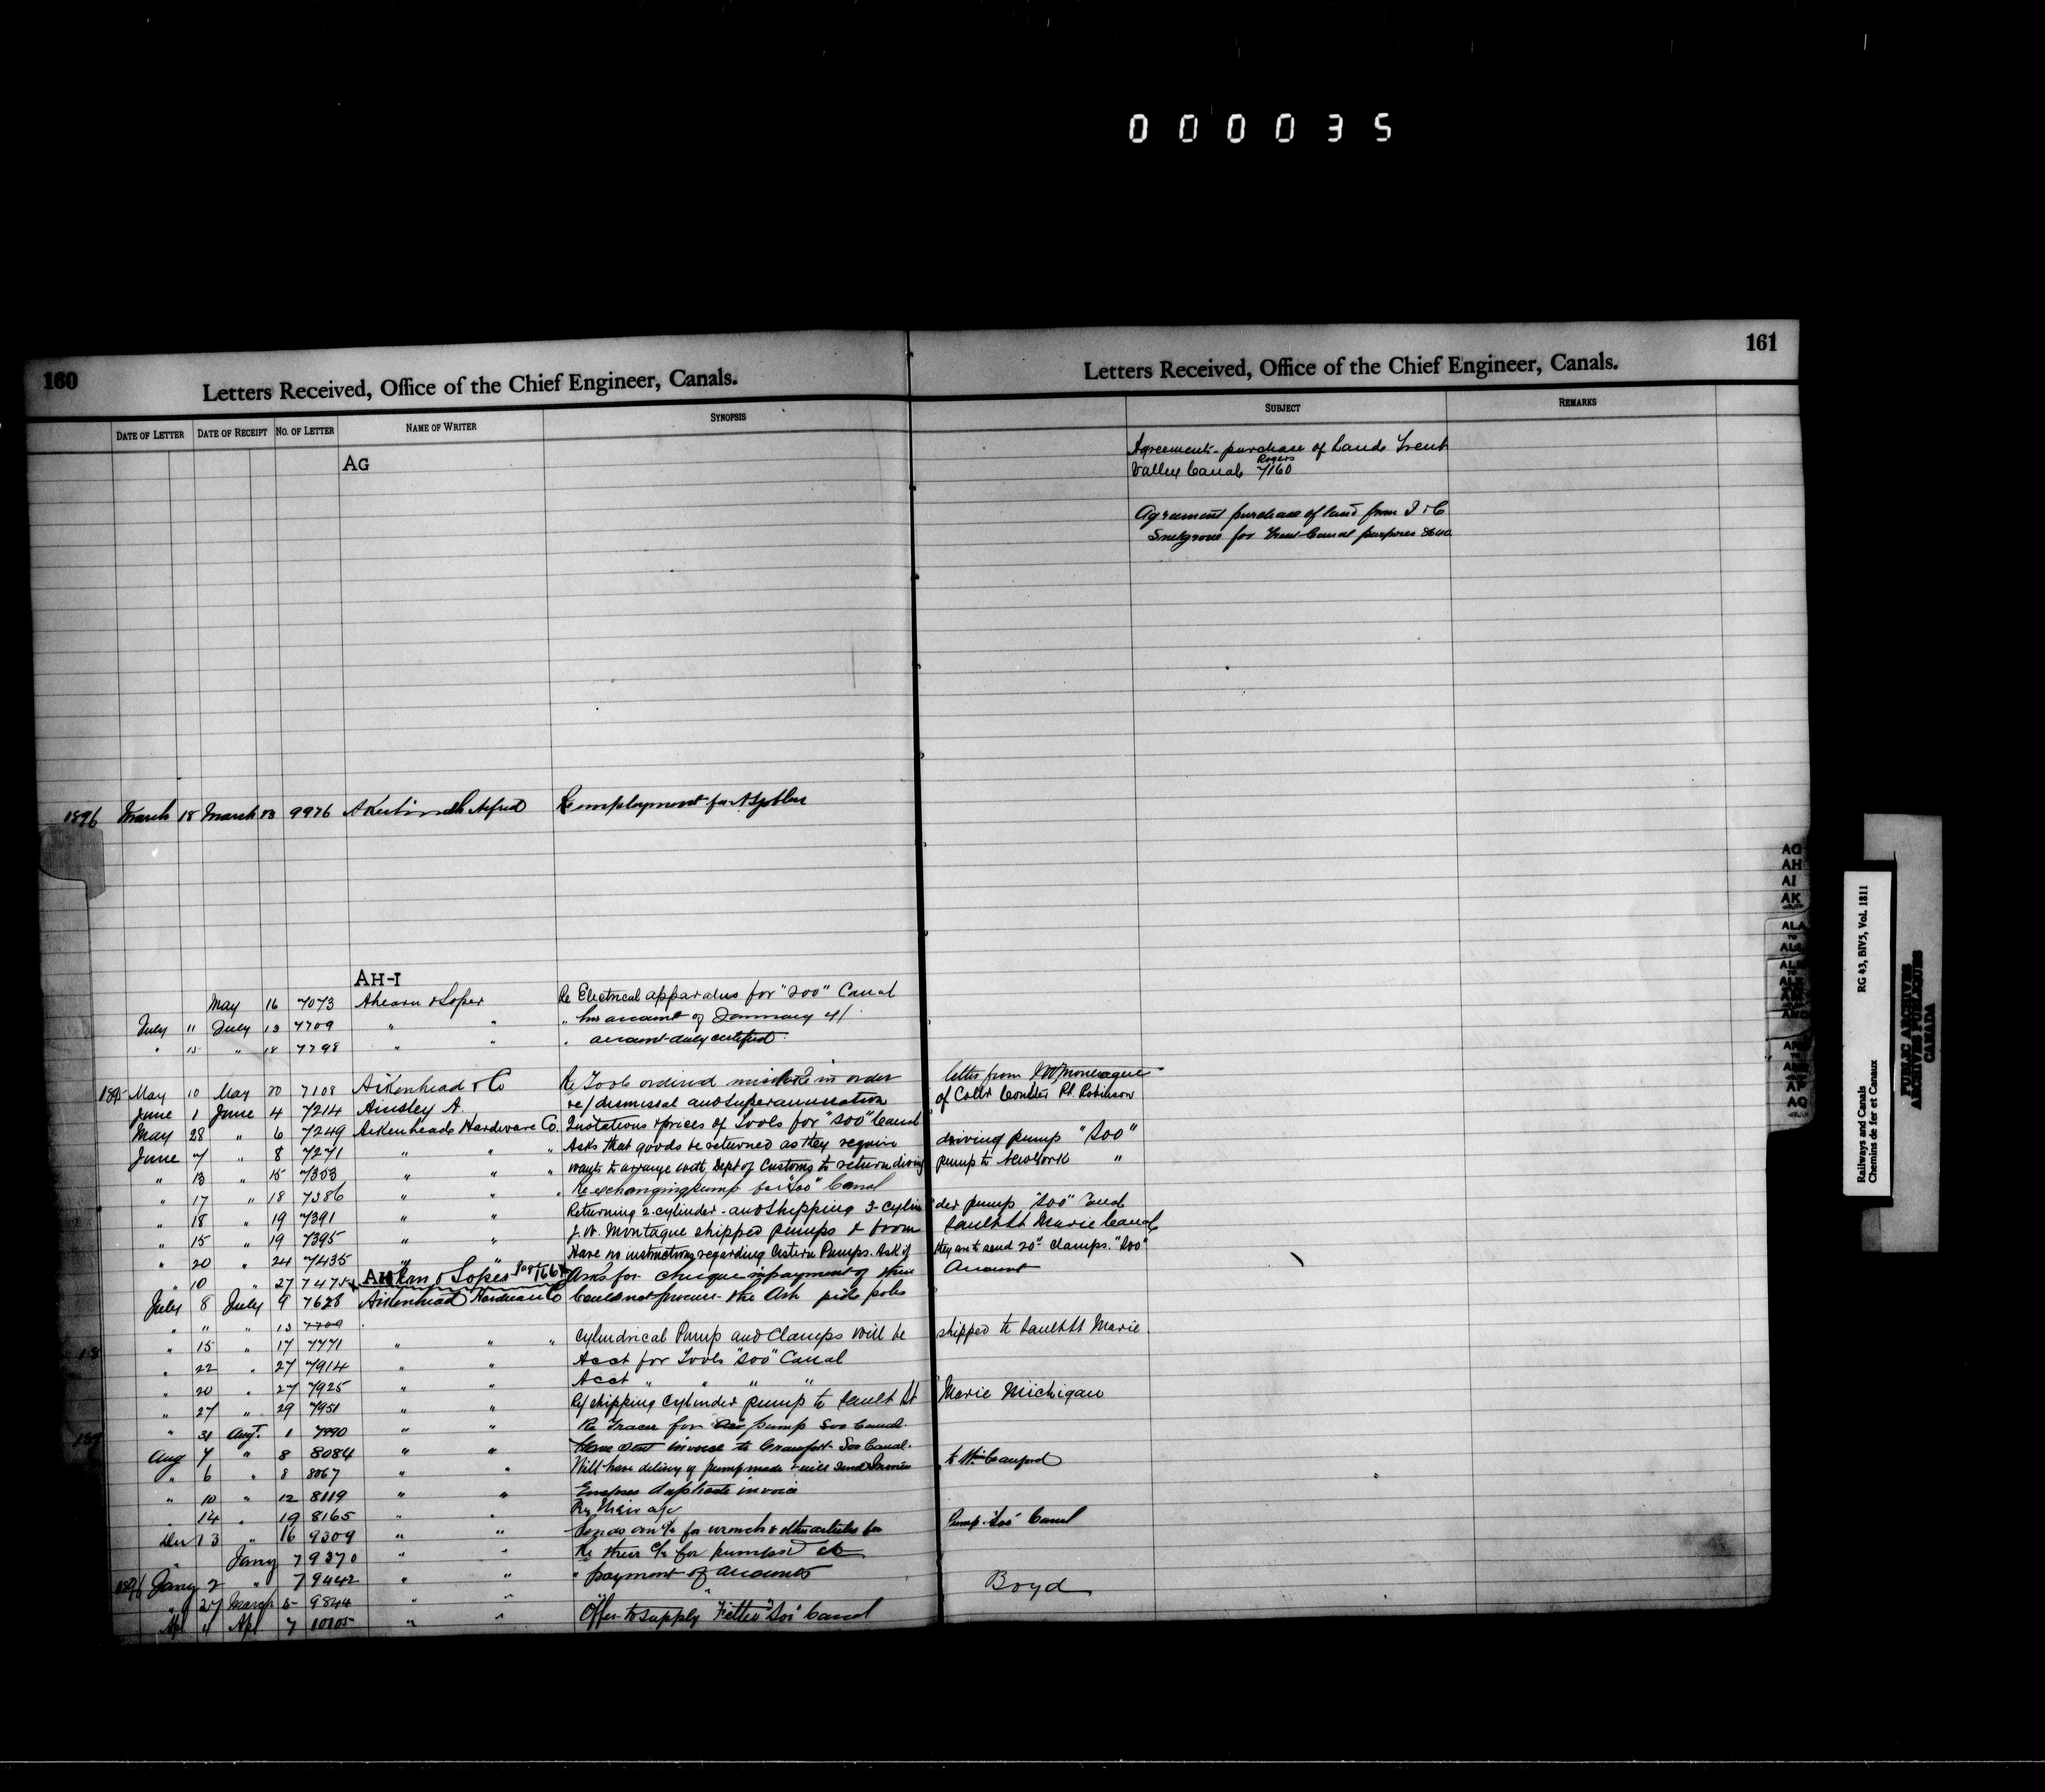 000035
160
Letters Received, Office of the Chief Engineer, Canals.
Letters Received, Office of the Chief Engineer, Canals.
161
DATE OF LETTER DATE OF RECEIPT NO. OF LETTER NAME OF WRITER SYNOPSIS SUBJECT REMARKS
AG
Agreements purchase of Lands Trent
Valley Canal Rogers 7160
Agreement purchase of land from I & C
for Trent Canal purposes 8640
1896 March 18 March 9976 Alfred Re employment for
AH-I
May 16 7073 Ahearn & Soper Re Electrical apparatus for "Soo" Canal
July 11 July 13 7709 " " " his account of January 4/
" 15 " 18 7798 " " " account duly certified
1895 May 10 May 20 7108 Aikenhead & Co Re Tools ordered mistake in order letter from
June 1 June 4 7214 Ainsley A. re/ dismissal and superannuation of Collr Coulter Pt. Robinson
May 28 " 6 7249 Aikenhead Hardware Co. Quotations & prices of Tools for "Soo" Canal
June 7 " 8 7271 " " " Asks that goods be returned as they require driving pump "Soo"
" 13 " 15 7353 " " " Wants to arrange with Dept of Customs to return diving pump to New York "
" 17 " 18 7386 " " " Re exchanging pump for "Soo" Canal
" 18 " 19 7391 " " Returning 2-cylinder and shipping 3-cylin der pump "Soo" Canal
" 15 " 19 7395 " " J. W. Montague shipped pumps & from Sault St Marie Canal
" 20 " 24 7435 " " Have no instructions regarding Cistern Pumps. Ask if they are to send 20" clamps. "Soo"
" 10 " 27 7475 Ahearn & Soper 166 Asks for cheque in payment of their Account
July 8 July 9 7628 Aikenhead Hardware Co Could not procure the Ash pike poles
" " " 13 7709
" 15 " 17 7771 " " " Cylindrical Pump and Clamps will be shipped to Sault St Marie.
" 22 " 27 7914 " " Acct for Tools "Soo" Canal
" 20 " 27 7925 " " Acct " " " "
" 27 " 29 7951 " " Re/ shipping Cylinder pump to Sault St Marie Michigan
" 31 Augt. 1 7990 " " Re Tracer for pump Soo Canal.
Aug 7 " 8 8084 " " Have sent invoice to Crawford Soo Canal.
" 6 " 8 8067 " " Will have delivery of pump made & will send Invoice to Wm Crawford
" 10 " 12 8119 " " Encloses duplicate invoice
" 14 " 19 8165 " " Re their a/c
Dec 13 " 16 9309 " " Sends an a/c for wrench & other articles for Pump "Soo" Canal
" Jany 7 9370 " " Re their a/c for pumps
1896 Jany 2 " 7 9442 " " " payment of accounts
" 27 March 5 9844 " " " Boyd
Apl 4 Apl 7 10105 " " Offer to supply "Soo" Canal
AG
AH
AI
AK
ALA
TO
AQ
Railways and Canals RG 43, BIV5, Vol. 1811
Chemins de fer et Canaux
PUBLIC ARCHIVES
ARCHIVES PUBLIQUES
CANADA